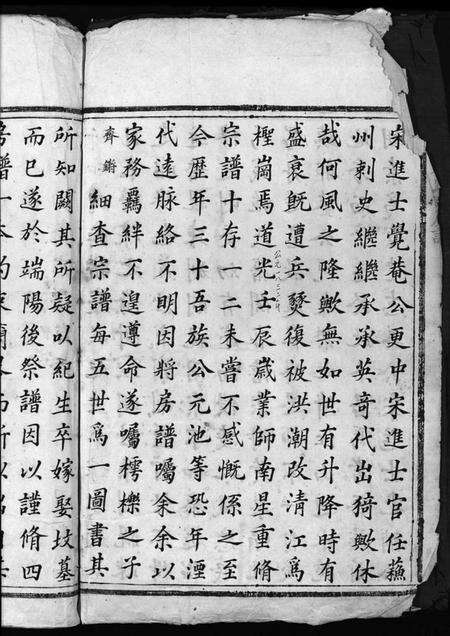 宋進士覺菴公更中宋進士官任蘓
州刺史繼繼承承英奇代出猗歟休
哉何風之隆歟無如世有升降時有
盛衰旣遭兵燹復被洪潮改清江爲
樫崗焉道光壬辰歲業師南星重脩
宗譜十存一二未嘗不感慨係之至
今歴年三十吾族公元池等恐年湮
代逺脉絡不明因將房譜囑余余以
家務羈絆不遑遵命遂囑樗櫟之子
齊鏘細查宗譜每五世爲一圖書其
所知闕其所疑以紀生卒嫁娶坟墓
而已遂於端陽後祭譜因以謹脩四